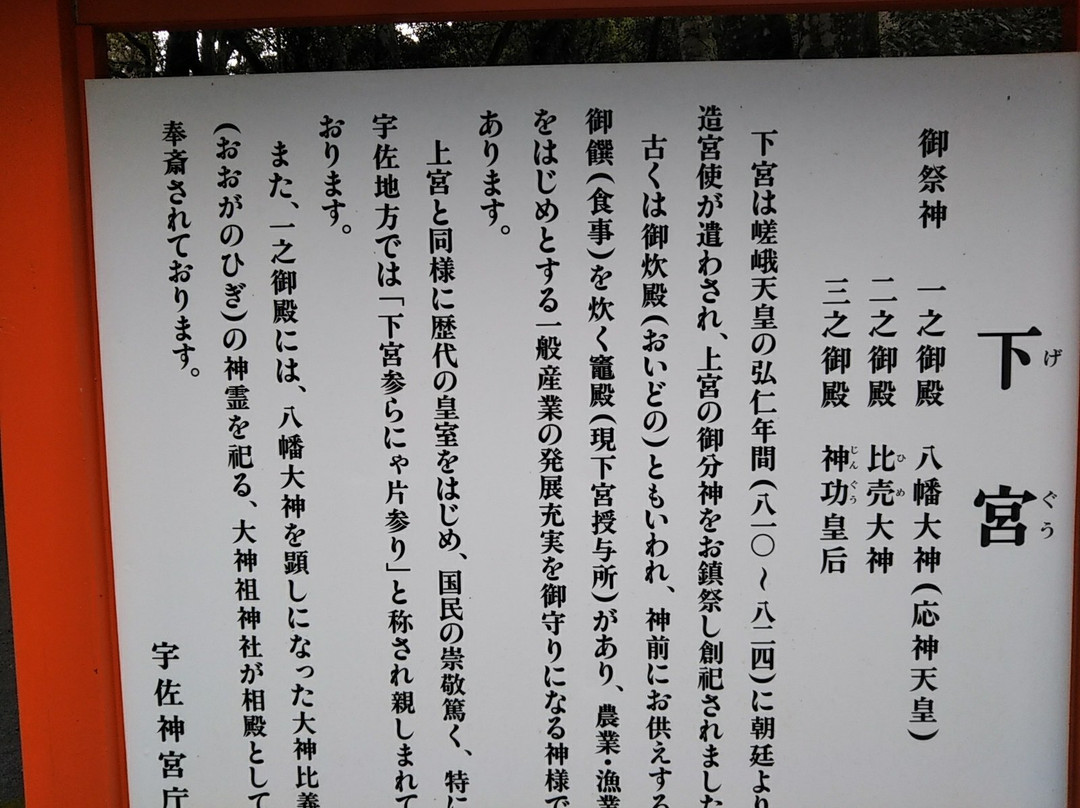 下宮
げぐう
御祭神 一之御殿 八幡大神(応神天皇)
二之御殿 比売大神
ひめ
三之御殿 神功皇后
じんぐう
下宮は嵯峨天皇の弘仁年間(八一〇～八二四)に朝廷より
造宮使が遣わされ、上宮の御分神をお鎮祭し創祀されました
古くは御炊殿(おいどの)ともいわれ、神前にお供えする
御饌(食事)を炊く竈殿(現下宮授与所)があり、農業・漁業
をはじめとする一般産業の発展充実を御守りになる神様で
あります。
上宮と同様に歴代の皇室をはじめ、国民の崇敬篤く、特に
宇佐地方では「下宮参らにゃ片参り」と称され親しまれて
おります。
また、一之御殿には、八幡大神を顕しになった大神比義
(おおがのひぎ)の神霊を祀る、大神祖神社が相殿として
奉斎されております。
宇佐神宮庁